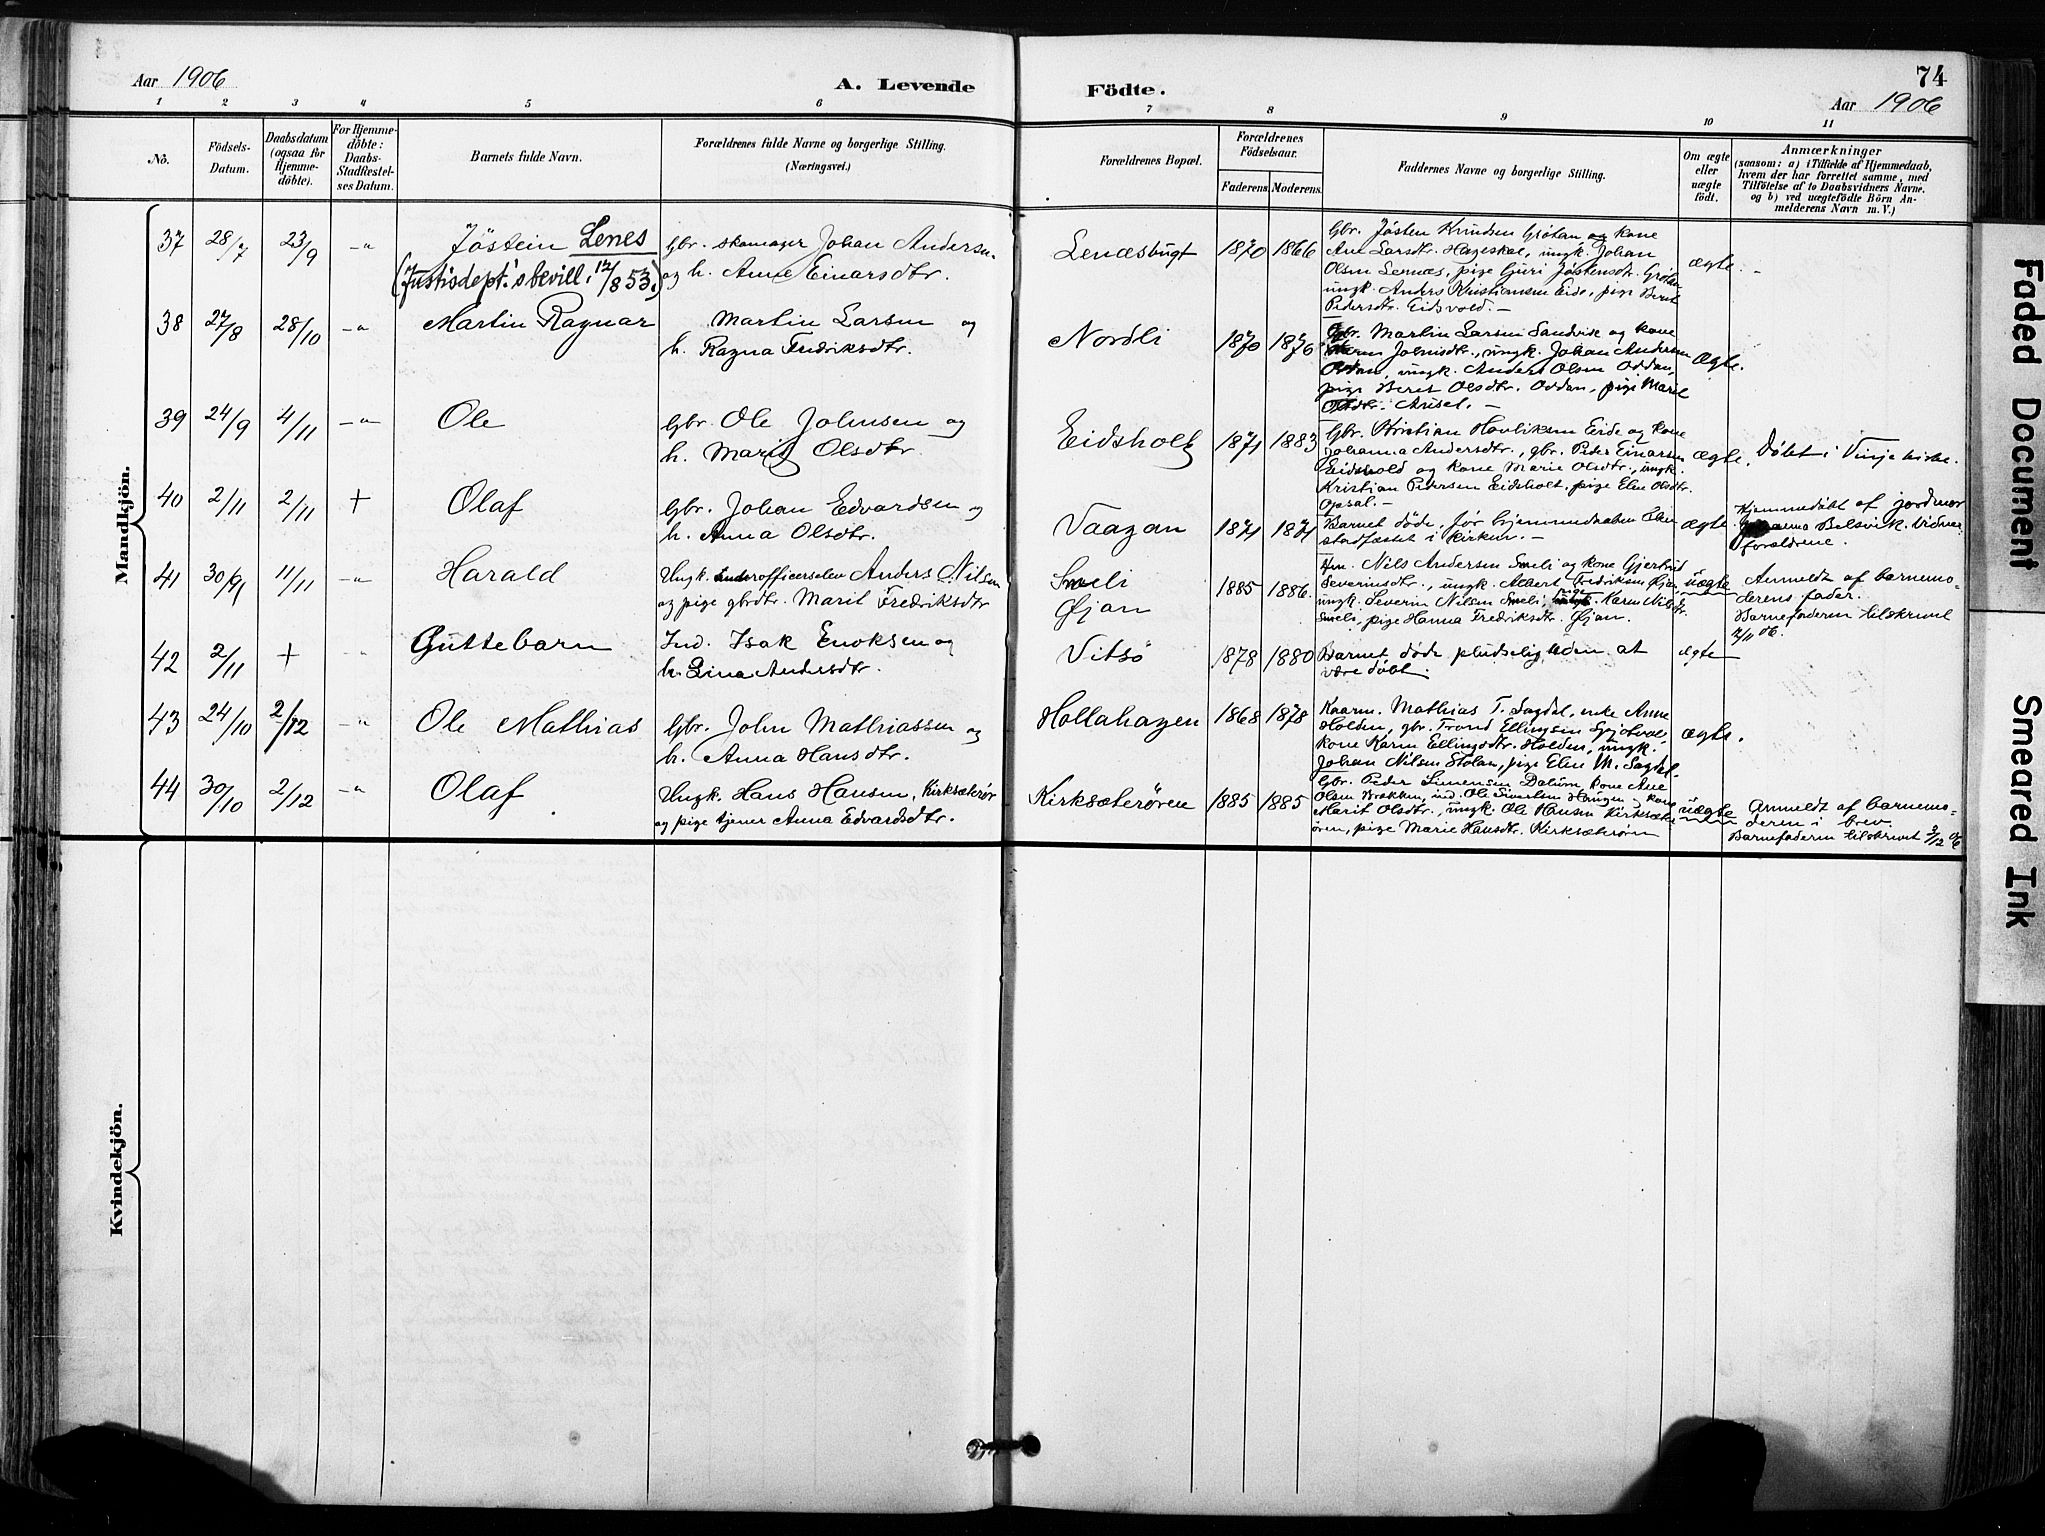 74
Aar 1906
A. Levende
Födte.
Aar 1906
1 2 3 4 5 6 7 8 9 10 11
No.
Födsels-
Datum.
Daabsdatum
(ogsaa for
Hjemme-
döbte).
For Hjemme-
döbte:
Daabs-
Stadfæstel-
ses Datum.
Barnets fulde Navn.
Forældrenes fulde Navne og borgerlige Stilling.
(Næringsvei.)
Forældrenes Bopæl.
Forældrenes
Födselsaar.
Faderens. Moderens.
Faddernes Navne og borgerlige Stilling.
Om ægte
eller
uægte
födt.
Anmærkninger
(saasom: a) i Tilfælde af Hjemmedaab,
hvem der har forrettet samme, med
Tilföielse af to Daabsvidners Navne.
og b) ved uægtefödte Börn An-
melderens Navn m. V.)
Mandkjön.
37 28/7 23/9 -"- Jöstein Lenes
(Justisdept.'s bevill. 12/8 53.)
Gbr. skomager Johan Andersen
og h. Anne Einarsdtr.
Lenæsbugt 1870 1866
Gbr. Jösten Knudsen Grötan og kone
Ane Larsdt. Hageskal, ungk. Johan
Olsen Lenæs, pige Guri Jöstensdt. Grötan
ungk. Anders Kristiansen Eide, pige Berit
Pedersdtr. Eidsvold. -
ægte. -
38 27/8 28/10 -"- Martin Ragnar
Martin Larsen og
h. Ragna Fredriksdtr.
Nordli 1870 1876
Gbr. Martin Larsen Sandvik og kone
Karen Johnsdtr., ungk. Johan Andersen
Oddan, ungk. Anders Olsen Oddan,
pige Berit Olsdtr. Oddan, pige Marie
Olsdtr. -
ægte.
39 24/9 4/11 -"- Ole
Gbr. Ole Johnsen og
h. Marit Olsdtr.
Eidsholt 1871 1883
Gbr. Kristian Havliksen Eide og kone
Johanna Andersdtr., gbr. Peder Einarsen
Eidshold og kone Marie Olsdtr., ungk.
Kristian Pedersen Eidsholt, pige Elen Olsdtr.
Opsal. -
ægte. Döbt i Vinje kirke.
40 2/11 2/11 + Olaf
Gbr. Johan Edvardsen og
h. Anna Olsdtr.
Vaagan 1871 1871
Barnet döde, för hjemmedaaben blev
stadfæstet i kirken. -
ægte
Hjemmedöbt af jordmor
Belsvik. Vidner
foreldrene.
41 30/9 11/11 -"- Harald
Ungk. underofficerselev Anders Nilsen
og pige gbrdtr. Marit Fredriksdtr
Smeli
Øjan
1885 1886.
Nils Andersen Smeli og kone Gjertrud
Severinsdtr., ungk. Albert Fredriksen Øjan,
ungk. Severin Nilsen Smeli, pige Karen Nilsdtr.
Smeli, pige Hanna Fredriksdtr. Øjan.
uægte
Anmeldt af barnemo-
derens fader.
Barnefaderen tilskrevet
2/11 06.
42 2/11 + -"- Guttebarn
Ind. Isak Enoksen og
h. Lina Andersdtr.
Vitsö 1878 1880
Barnet döde pludselig uden at
være döbt.
ægte
43 24/10 2/12 -"- Ole Mathias
Gbr. John Mathiassen og
h. Anna Hansdtr.
Hollahagen 1868 1878
Kaarm. Mathias T. Sagdal, enke Anne
Holden, gbr. Trond Ellingsen Spjotvol
kone Karen Ellingsdtr. Holden, ungk.
Johan Nilsen Stolan, pige Elen M. Sagdal.
ægte.
44 30/10 2/12 -"- Olaf
Ungk. Hans Hansen, Kirksæterör
og pige tjener Anna Edvardsdtr.
Kirksæterören 1885 1885
Gbr. Peder Simensen Dalum, kone Ane
Olsen Brekken, ind. Ole Sivertsen Haugen, kone
Marit Olsdtr., ungk. Ole Hansen Kirksæter
ören, pige Marie Hansdtr. Kirksæterören
uægte
Anmeldt af barnemo-
deren i brev.
Barnefaderen tilskrevet 3/12 06
Kvindekjön.
Faded Document
Smeared Ink